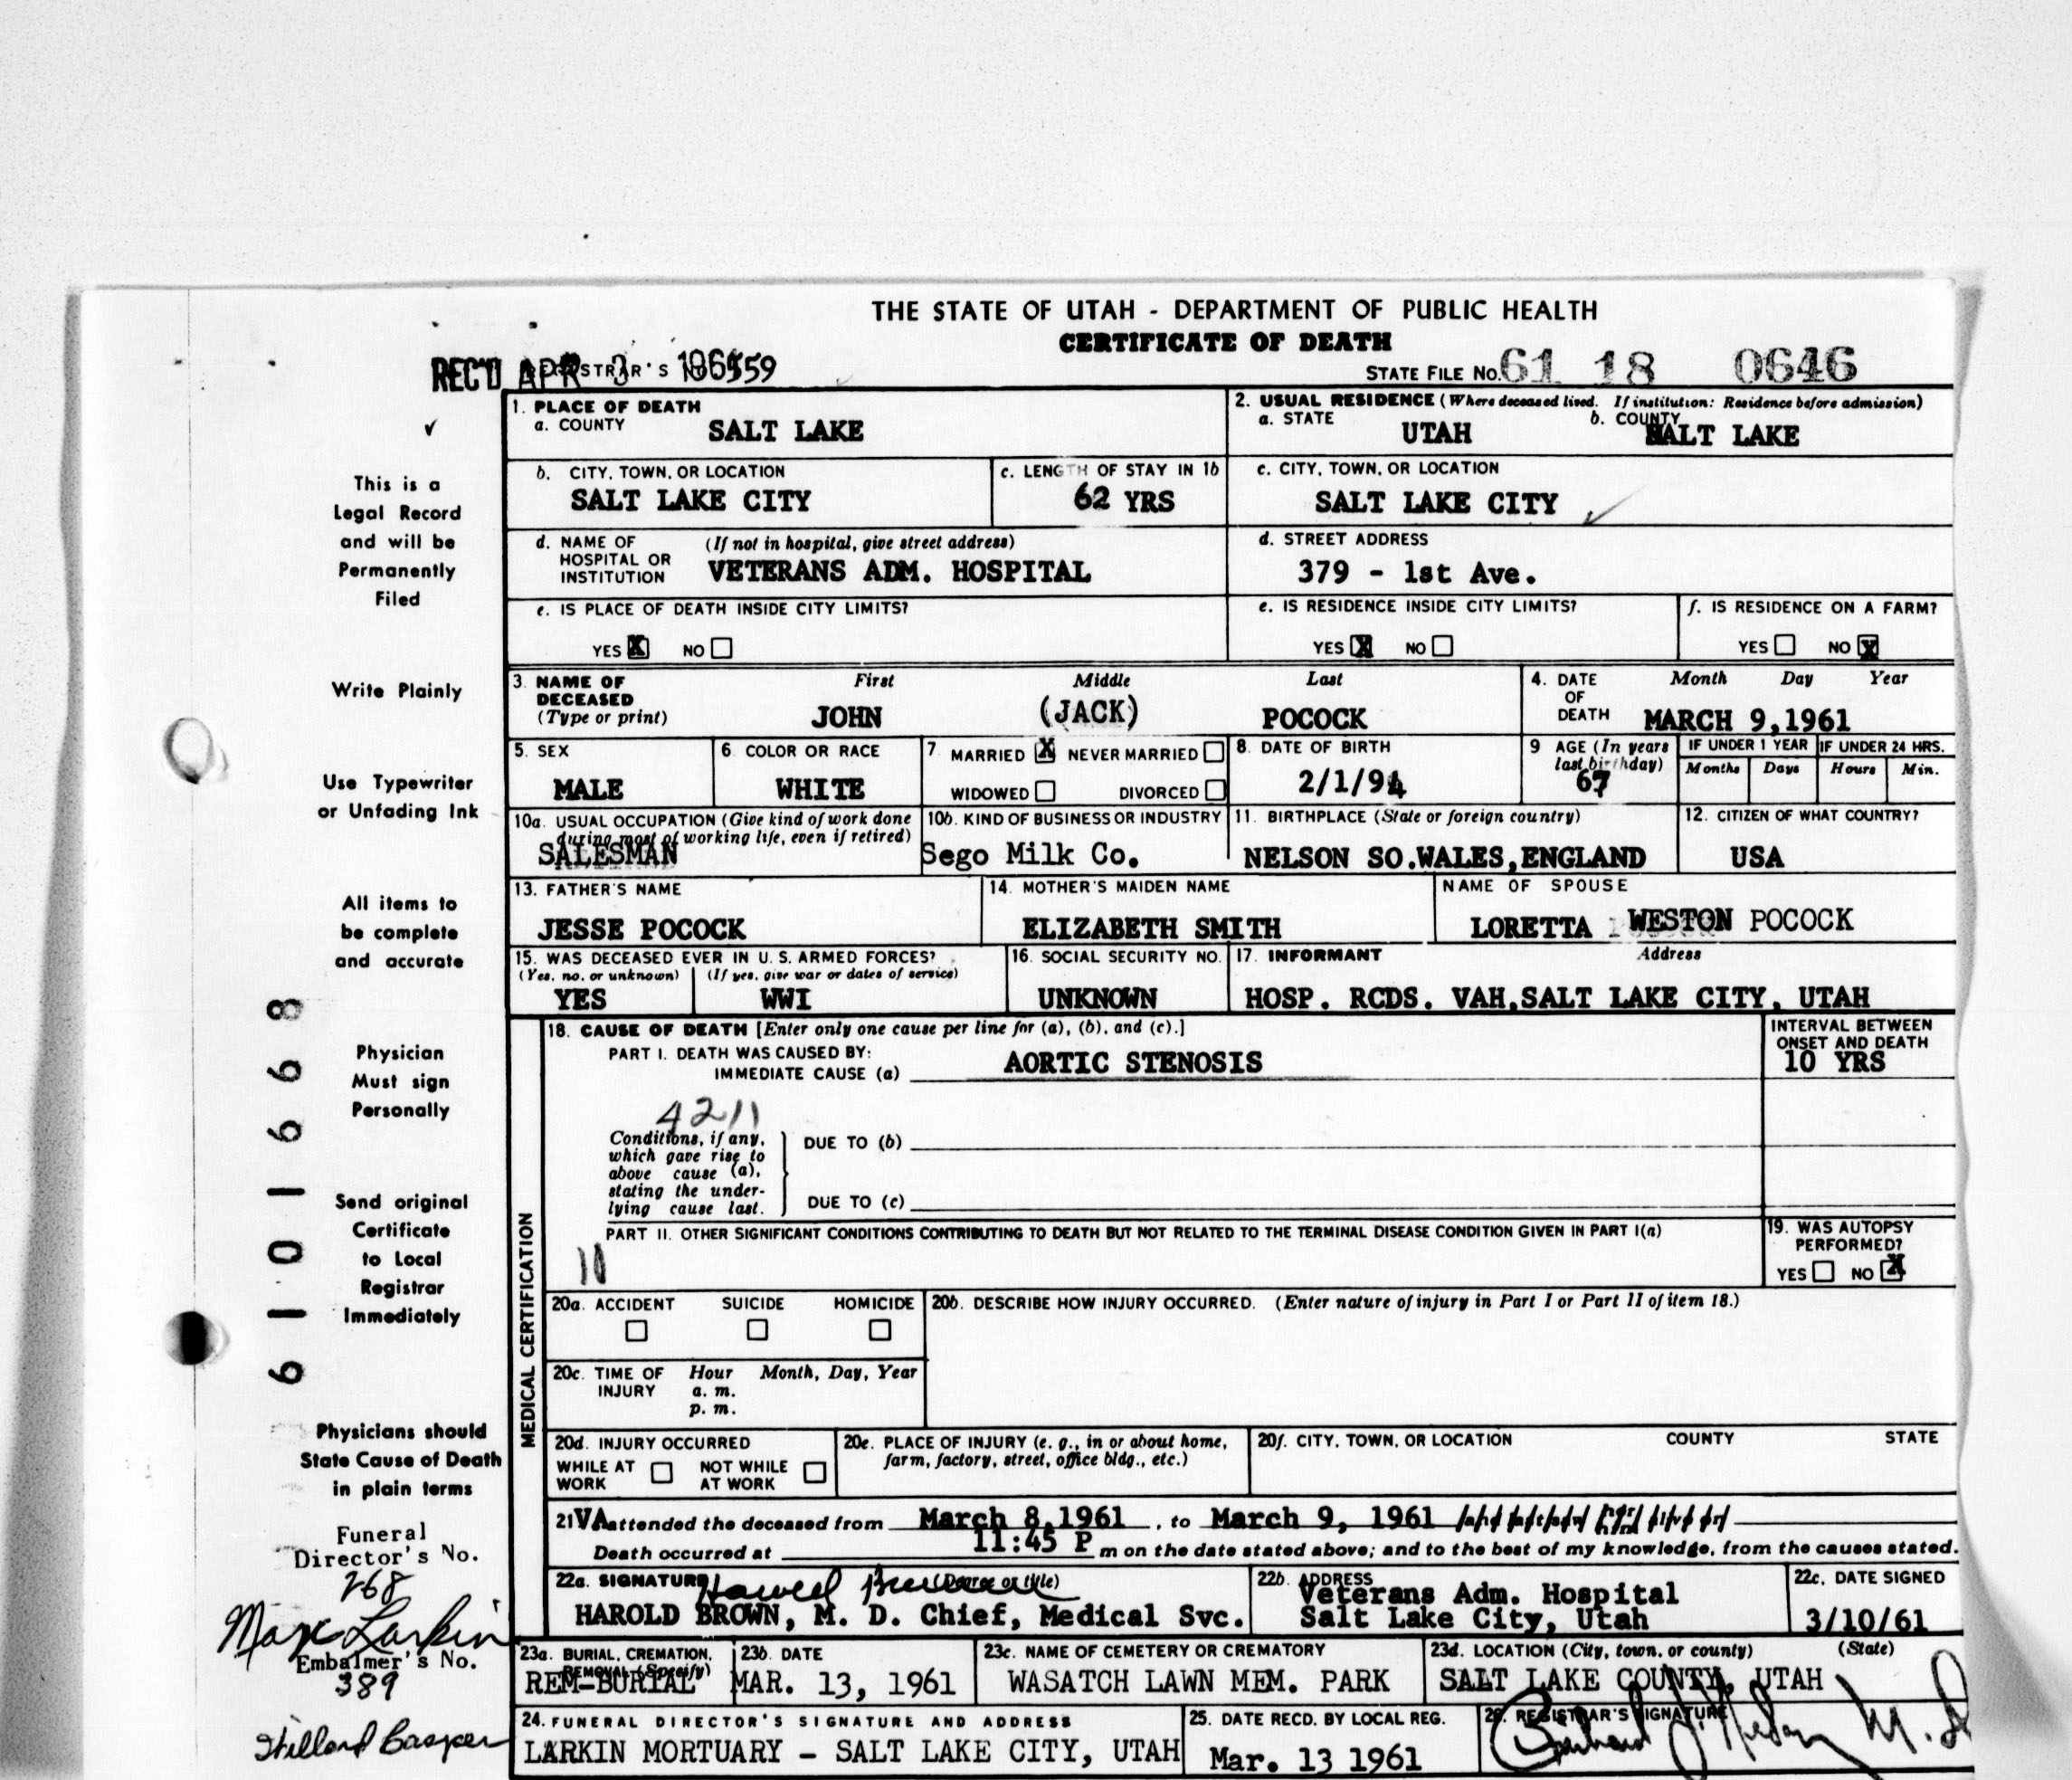 THE STATE OF UTAH - DEPARTMENT OF PUBLIC HEALTH
CERTIFICATE OF DEATH
REC'D APR 3 1961 559
STATE FILE No. 61 18 0646
1. PLACE OF DEATH
a. COUNTY SALT LAKE
2. USUAL RESIDENCE (Where deceased lived. If institution: Residence before admission)
a. STATE UTAH b. COUNTY SALT LAKE
b. CITY, TOWN, OR LOCATION SALT LAKE CITY
c. LENGTH OF STAY IN 1b 62 YRS
c. CITY, TOWN, OR LOCATION SALT LAKE CITY
d. NAME OF HOSPITAL OR INSTITUTION (If not in hospital, give street address) VETERANS ADM. HOSPITAL
d. STREET ADDRESS 379 - 1st Ave.
e. IS PLACE OF DEATH INSIDE CITY LIMITS?
YES X NO
e. IS RESIDENCE INSIDE CITY LIMITS?
YES X NO
f. IS RESIDENCE ON A FARM?
YES NO X
3. NAME OF DECEASED (Type or print)
First Middle Last
JOHN (JACK) POCOCK
4. DATE OF DEATH Month Day Year
MARCH 9,1961
5. SEX MALE
6. COLOR OR RACE WHITE
7 MARRIED X NEVER MARRIED
WIDOWED DIVORCED
8. DATE OF BIRTH 2/1/94
9 AGE (In years last birthday) 67
IF UNDER 1 YEAR Months Days
IF UNDER 24 HRS. Hours Min.
10a. USUAL OCCUPATION (Give kind of work done during most of working life, even if retired) SALESMAN
10b. KIND OF BUSINESS OR INDUSTRY Sego Milk Co.
11. BIRTHPLACE (State or foreign country) NELSON SO.WALES,ENGLAND
12. CITIZEN OF WHAT COUNTRY? USA
13. FATHER'S NAME JESSE POCOCK
14. MOTHER'S MAIDEN NAME ELIZABETH SMITH
NAME OF SPOUSE LORETTA WESTON POCOCK
15. WAS DECEASED EVER IN U. S. ARMED FORCES?
(Yes, no, or unknown) YES
(If yes, give war or dates of service) WWI
16. SOCIAL SECURITY NO. UNKNOWN
17. INFORMANT Address
HOSP. RCDS. VAH,SALT LAKE CITY, UTAH
MEDICAL CERTIFICATION
18. CAUSE OF DEATH [Enter only one cause per line for (a), (b), and (c).]
PART I. DEATH WAS CAUSED BY:
IMMEDIATE CAUSE (a) AORTIC STENOSIS
INTERVAL BETWEEN ONSET AND DEATH
10 YRS
4211
Conditions, if any, which gave rise to above cause (a), stating the underlying cause last.
DUE TO (b)
DUE TO (c)
PART II. OTHER SIGNIFICANT CONDITIONS CONTRIBUTING TO DEATH BUT NOT RELATED TO THE TERMINAL DISEASE CONDITION GIVEN IN PART I(a)
19. WAS AUTOPSY PERFORMED?
YES NO X
20a. ACCIDENT SUICIDE HOMICIDE
20b. DESCRIBE HOW INJURY OCCURRED. (Enter nature of injury in Part I or Part II of item 18.)
20c. TIME OF INJURY Hour Month, Day, Year
a. m.
p. m.
20d. INJURY OCCURRED
WHILE AT WORK NOT WHILE AT WORK
20e. PLACE OF INJURY (e. g., in or about home, farm, factory, street, office bldg., etc.)
20f. CITY, TOWN, OR LOCATION COUNTY STATE
21 VA attended the deceased from March 8,1961, to March 9, 1961
Death occurred at 11:45 P m on the date stated above; and to the best of my knowledge, from the causes stated.
22a. SIGNATURE (Degree or title)
HAROLD BROWN, M. D. Chief, Medical Svc.
22b. ADDRESS
Veterans Adm. Hospital
Salt Lake City, Utah
22c. DATE SIGNED
3/10/61
23a. BURIAL, CREMATION, REMOVAL (Specify) REM-BURIAL
23b. DATE MAR. 13, 1961
23c. NAME OF CEMETERY OR CREMATORY WASATCH LAWN MEM. PARK
23d. LOCATION (City, town, or county) (State)
SALT LAKE COUNTY, UTAH
24. FUNERAL DIRECTOR'S SIGNATURE AND ADDRESS
LARKIN MORTUARY - SALT LAKE CITY, UTAH
25. DATE RECD. BY LOCAL REG.
Mar. 13 1961
26. REGISTRAR'S SIGNATURE
This is a
Legal Record
and will be
Permanently
Filed
Write Plainly
Use Typewriter
or Unfading Ink
All items to
be complete
and accurate
Physician
Must sign
Personally
Send original
Certificate
to Local
Registrar
Immediately
Physicians should
State Cause of Death
in plain terms
Funeral
Director's No.
268
Max Larkin
Embalmer's No.
389
61019668